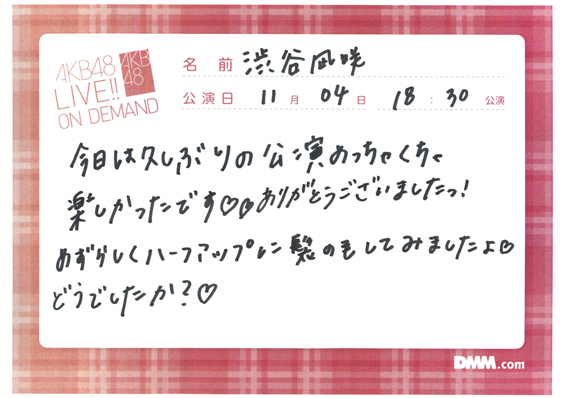 AKB48
LIVE!!
ON DEMAND
AKB
48
名前 渋谷凪咲
公演日 11月 04日 18:30 公演
今日は久しぶりの公演めっちゃくちゃ
楽しかったです♡♡ありがとうございましたっ!
めずらしくハーフアップに髪のもしてみましたよ♡
どうでしたか?♡
DMM.com